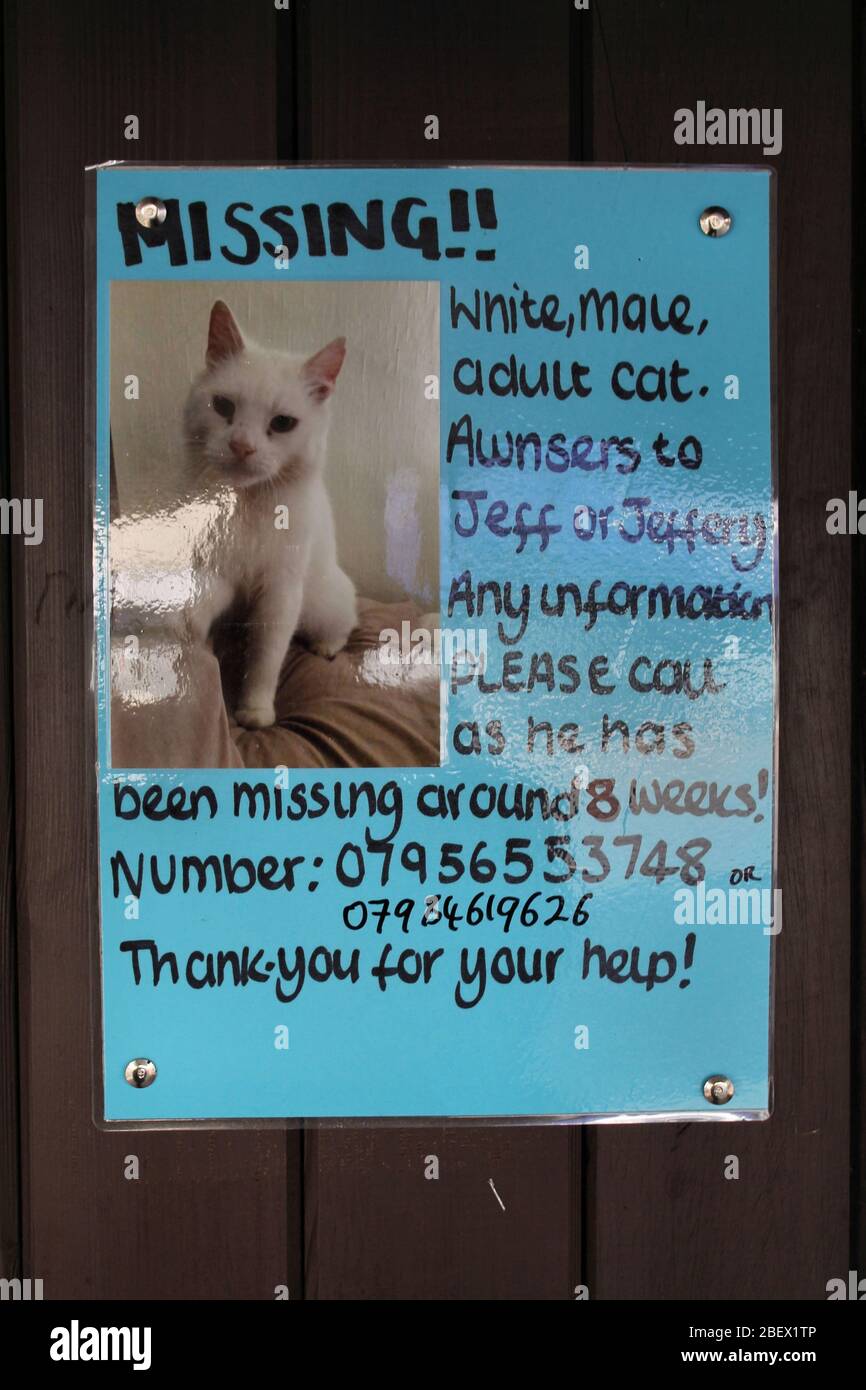 MISSING!!
White, Male,
adult cat.
Awnsers to
Jeff or Jeffery
Any information
PLEASE call
as he has
been missing around 8 weeks!
Number: 07956553748 OR
07934619626
Thank-you for your help!
alamy
alamy
Image ID: 2BEX1TP
www.alamy.com